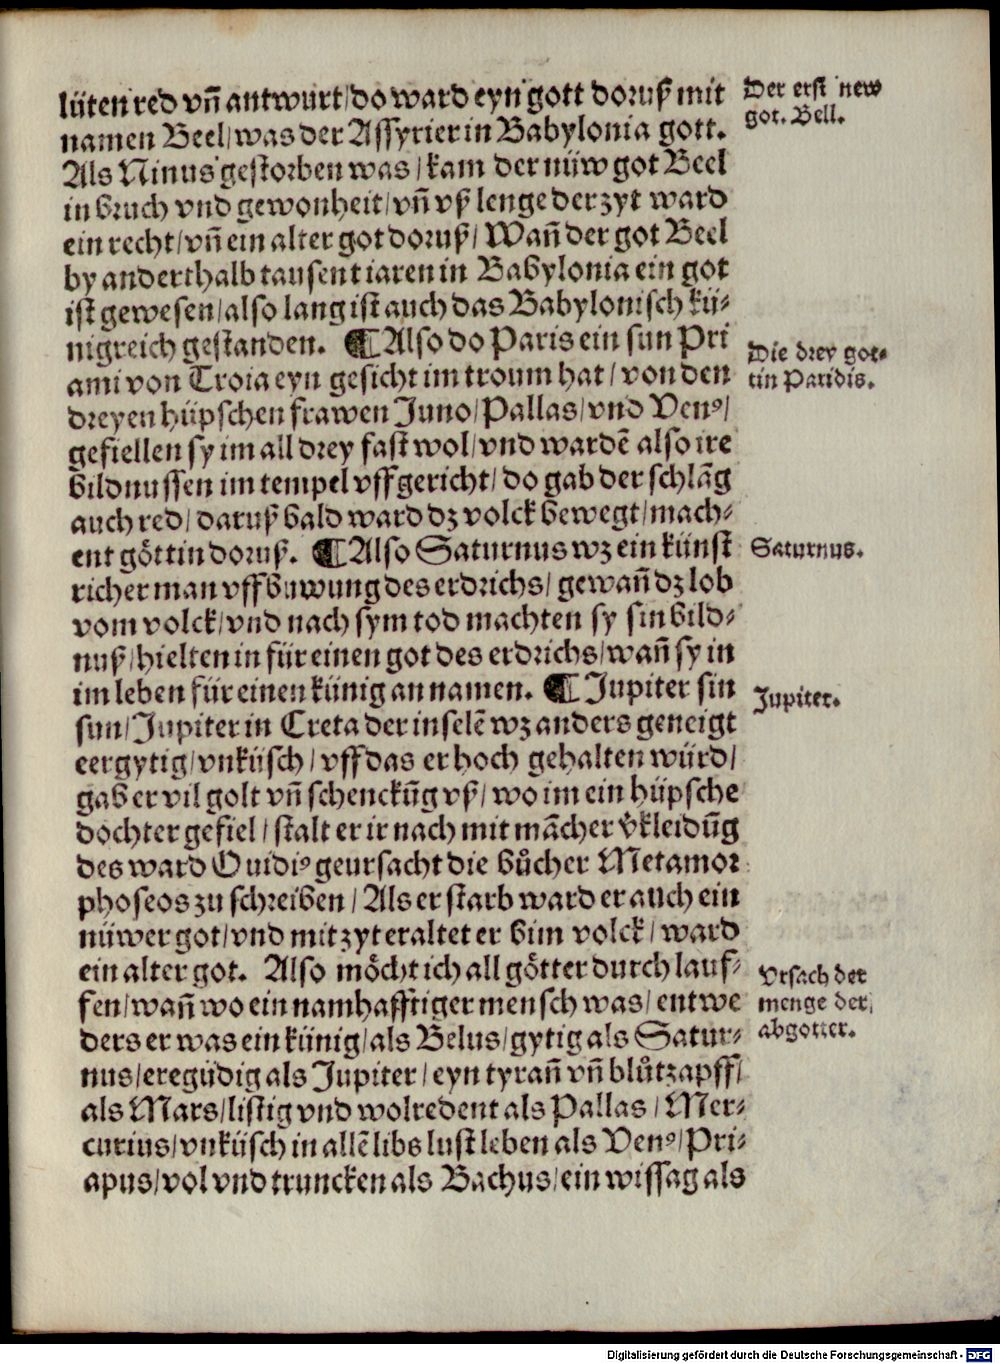 lüten red vñ antwurt/do ward eyn gott doruß mit
namen Beel/was der Assyrier in Babylonia gott.
Als Ninus gestorben was/kam der nüw got Beel
in bruch vnd gewonheit/vñ vß lenge der zyt ward
ein recht/vñ ein alter got doruß/Wañ der got Beel
by anderthalb tausent iaren in Babylonia ein got
ist gewesen/also lang ist auch das Babylonisch kü-
nigreich gestanden. ¶ Also do Paris ein sun Pri
ami von Troia eyn gesicht im troum hat/von den
dreyen hüpschen frawen Juno/Pallas/vnd Venꝰ/
gefiellen sy im all drey fast wol/vnd wardē also ire
bildnussen im tempel vffgericht/do gab der schlãg
auch red/daruß bald ward dz volck bewegt/mach-
ent göttin doruß. ¶ Also Saturnus wz ein künst
richer man vffbuwung des erdrichs/gewañ dz lob
vom volck/vnd nach sym tod machten sy sin bild-
nuß/hielten in für einen got des erdrichs/wañ sy in
im leben für einen künig an namen. ¶ Jupiter sin
sun/Jupiter in Creta der inselē wz anders geneigt
eergytig/vnküsch/vff das er hoch gehalten würd/
gab er vil golt vñ schenckũg vß/wo im ein hüpsche
dochter gefiel/stalt er ir nach mit mãcher v̉kleidũg
des ward Ouidiꝰ geursacht die bůcher Metamor
phoseos zu schreiben/Als er starb ward er auch ein
nüwer got/vnd mit zyt eraltet er bim volck/ward
ein alter got. Also möcht ich all götter durch lauf-
fen/wañ wo ein namhafftiger mensch was/entwe
ders er was ein künig/als Belus/gytig als Satur-
nus/eregüdig als Jupiter/eyn tyrañ vñ blůtzapff/
als Mars/listig vnd wolredent als Pallas/Mer-
curius/vnküsch in allē libs lust leben als Venꝰ/Pri-
apus/vol vnd truncken als Bachus/ein wissag als
Der erst new
got. Bell.
Die drey got-
tin Paridis.
Saturnus.
Jupiter.
Vrsach der
menge der
abgotter.
Digitalisierung gefördert durch die Deutsche Forschungsgemeinschaft - DFG